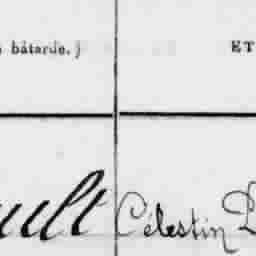 bâtarde.) ET
ult Célestin